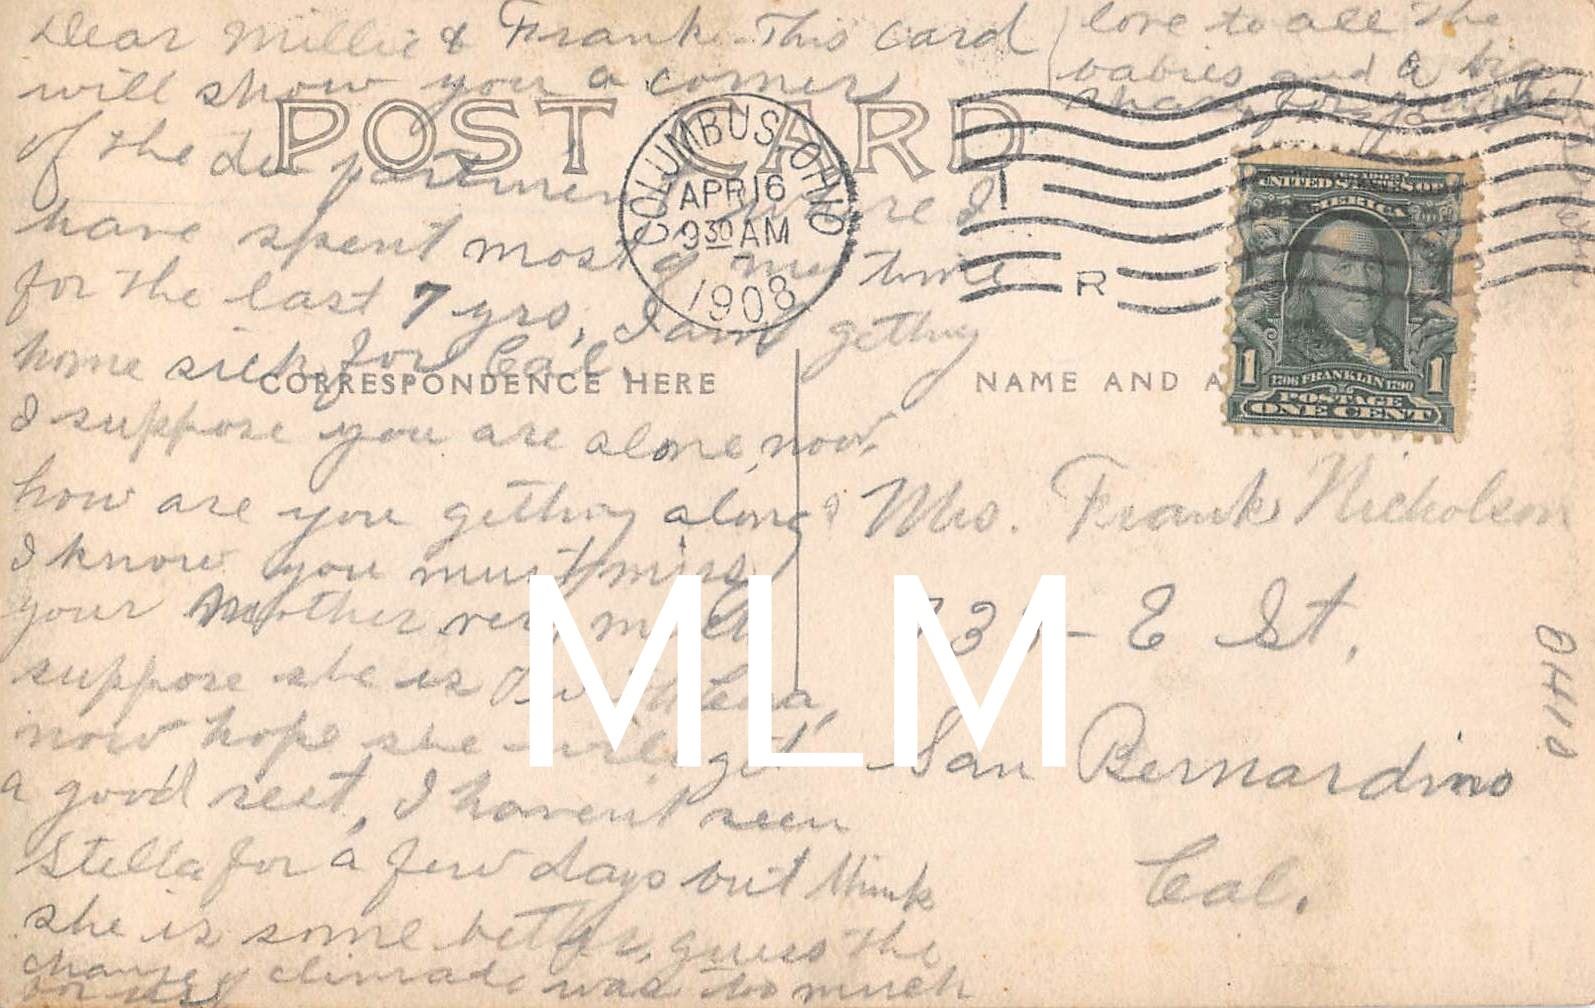 Dear Millie & Frank. This card
will show you a corner
of the department where I
have spent most of my time
for the last 7 yrs, I am getting
home sick for Cal.
I suppose you are alone, now.
how are you getting along?
I know you must miss
your Mother very much
suppose she is with
now hope she will get
a good rest, I havent seen
Stella for a few days but think
she is some better, guess the
change of climade was too much
for her
love to all the
babies and a big
share for
POST CARD
COLUMBUS, OHIO
APR 16
930 AM
1908
R
UNITED STATES OF
AMERICA
1706 FRANKLIN 1790
1 1
POSTAGE
ONE CENT
CORRESPONDENCE HERE
NAME AND A
Mrs. Frank Nicholson
E St.
San Bernardino
Cal.
OHIO
MLM